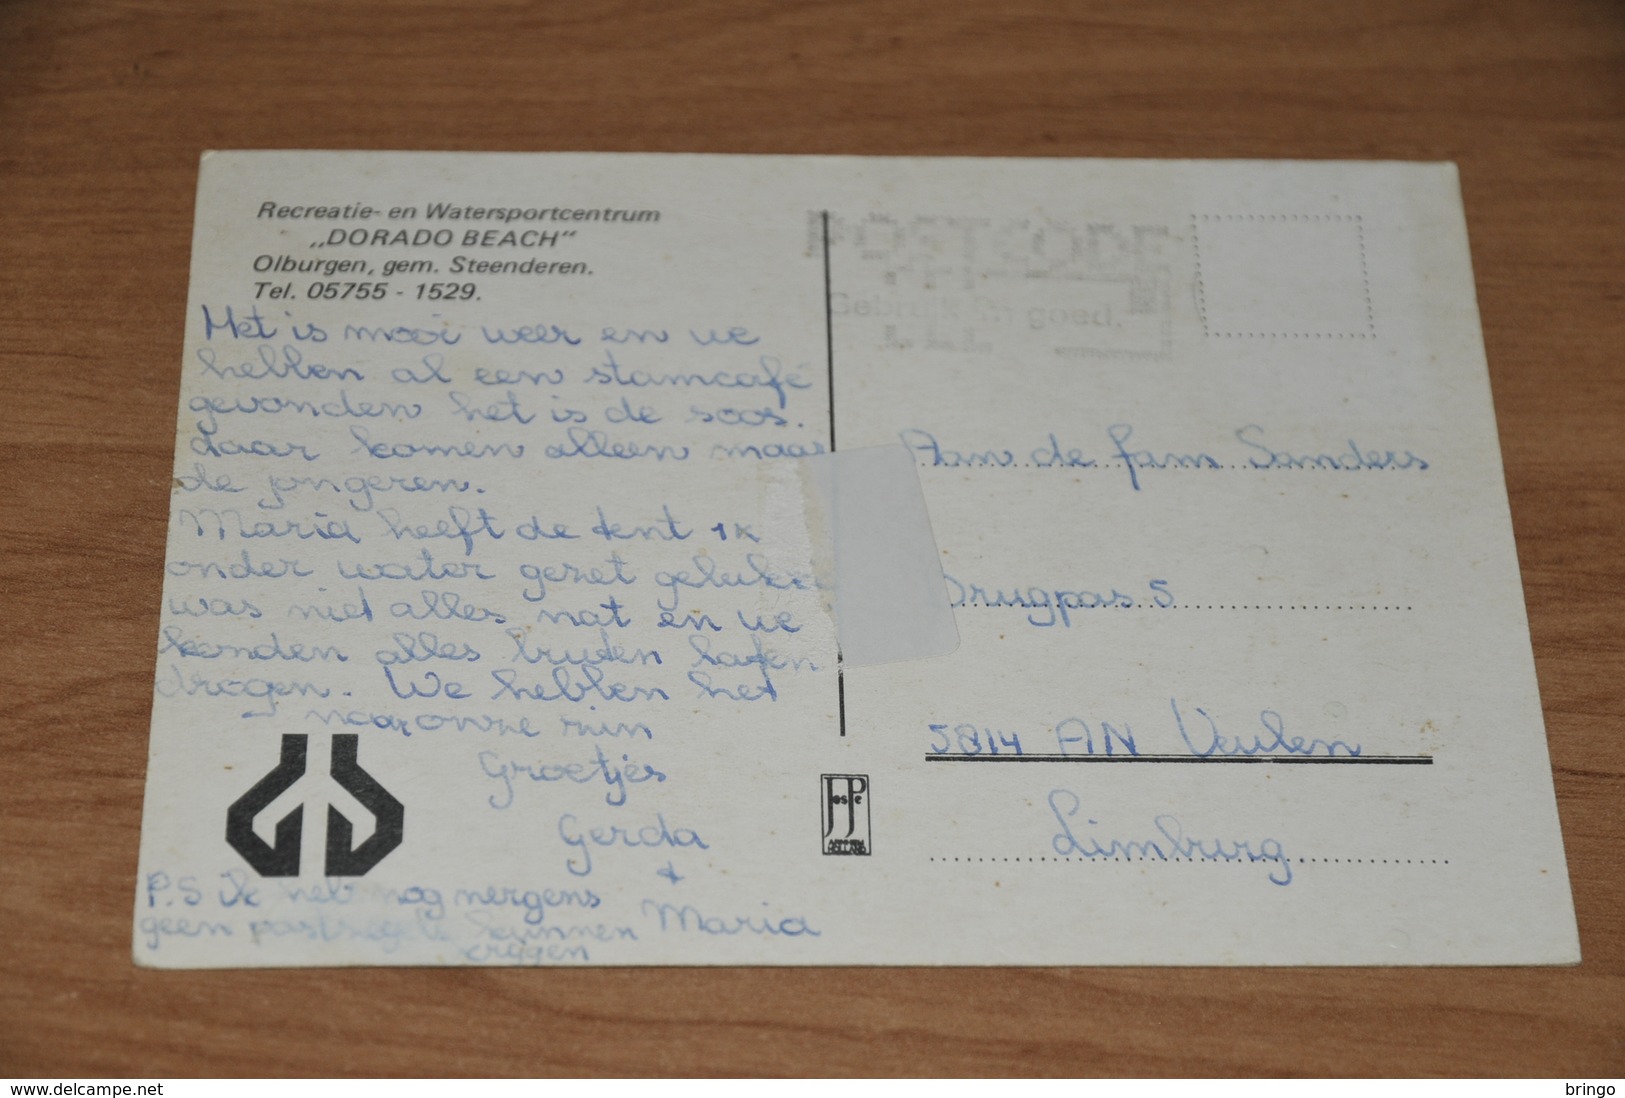 Recreatie- en Watersportcentrum
„DORADO BEACH"
Olburgen, gem. Steenderen.
Tel. 05755 - 1529.
Het is mooi weer en we
hebben al een stamcafé
gevonden het is de soos.
daar komen alleen maar
de jongeren.
Maria heeft de tent 1x
onder water gezet
was niet alles nat en we
konden alles buiten laten
drogen. We hebben het
naar onze zin
Groetjes
Gerda
+
Maria
P.S Ik heb nog nergens
geen kunnen
krijgen
POSTCODE
Gebruik 'm goed.
Aan de fam Sanders
5
5814 AN Veulen
Limburg
JosPe
delcampe.net
bringo